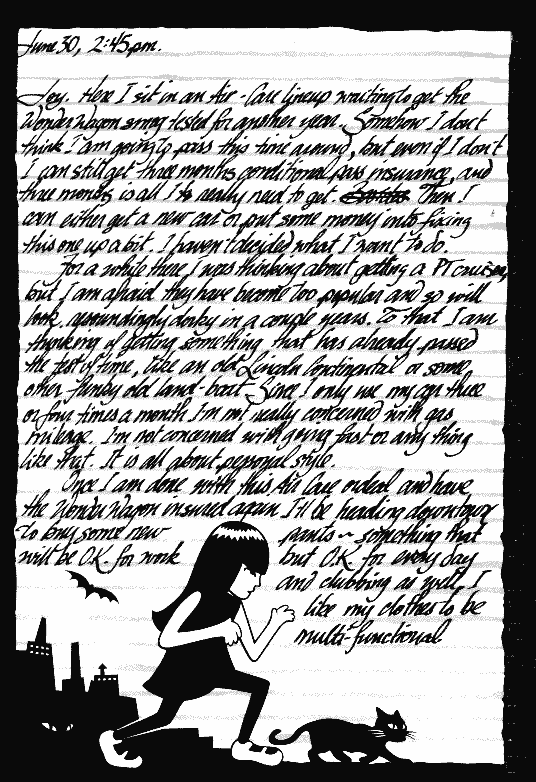 June 30, 2:45pm.
Joy. Here I sit in an Air-Care lineup waiting to get the
Wonder Wagon smog tested for another year. Somehow I don't
think I am going to pass this time around, but even if I don't
I can still get three months conditional pass insurance, and
three months is all I really need to get. Then I
can either get a new car or put some money into fixing
this one up a bit. I haven't decided what I want to do.
For a while there I was thinking about getting a PT cruiser,
but I am afraid they have become too popular and so will
look resoundingly dorky in a couple years. To that I am
thinking of getting something that has already passed
the test of time, like an old Lincoln Continental or some
other funky old land-boat. Since I only use my car three
or four times a month I'm not really concerned with gas
mileage. I'm not concerned with going fast or any thing
like that. It is all about personal style.
Once I am done with this Air Care ordeal and have
the Wonder Wagon insured again I'll be heading downtown
to buy some new pants ~ something that
will be O.K. for work but O.K. for every day
and clubbing as well, I
like my clothes to be
multi-functional.